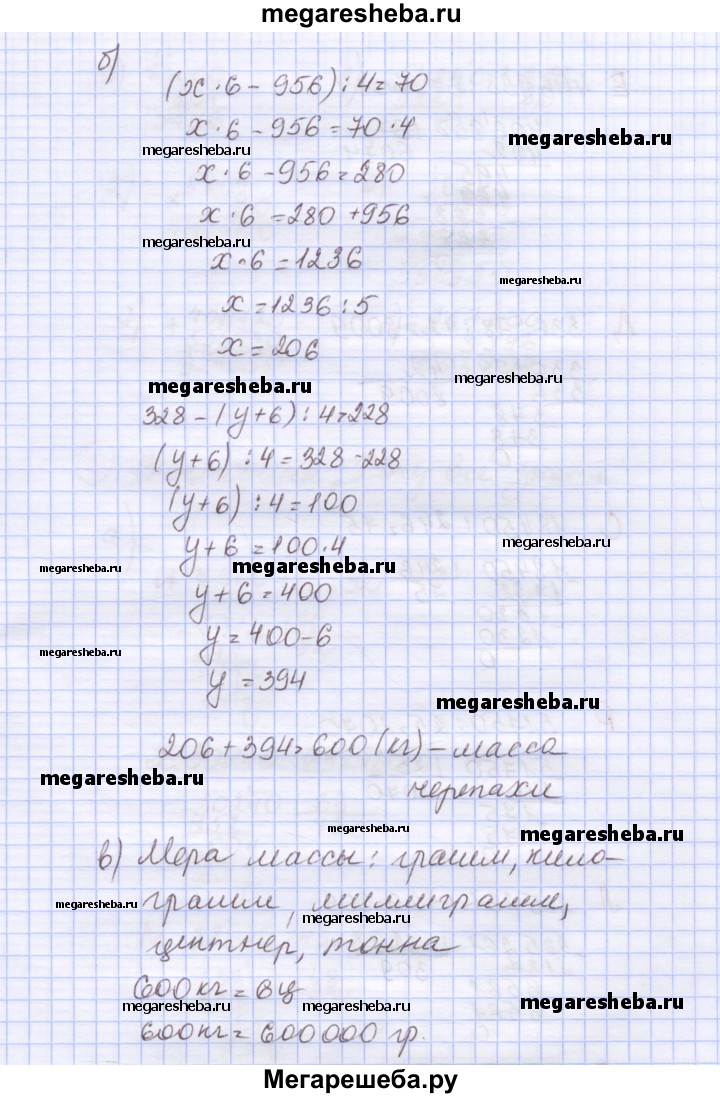 megaresheba.ru
б)
(x · 6 - 956) : 4 = 70
x · 6 - 956 = 70 · 4
megaresheba.ru
megaresheba.ru
x · 6 - 956 = 280
x · 6 = 280 + 956
megaresheba.ru
x · 6 = 1236
megaresheba.ru
x = 1236 : 5
x = 206
megaresheba.ru
megaresheba.ru
328 - (y + 6) : 4 = 228
(y + 6) : 4 = 328 - 228
(y + 6) : 4 = 100
megaresheba.ru
y + 6 = 100 · 4
megaresheba.ru
megaresheba.ru
y + 6 = 400
y = 400 - 6
megaresheba.ru
y = 394
megaresheba.ru
206 + 394 = 600 (кг) - масса
megaresheba.ru
черепахи
megaresheba.ru
megaresheba.ru
в) Мера массы: грамм, кило-
megaresheba.ru
грамм, миллиграмм,
megaresheba.ru
центнер, тонна
600 кг = 6 ц
megaresheba.ru
megaresheba.ru
megaresheba.ru
600 кг = 600 000 гр.
Мегарешеба.ру